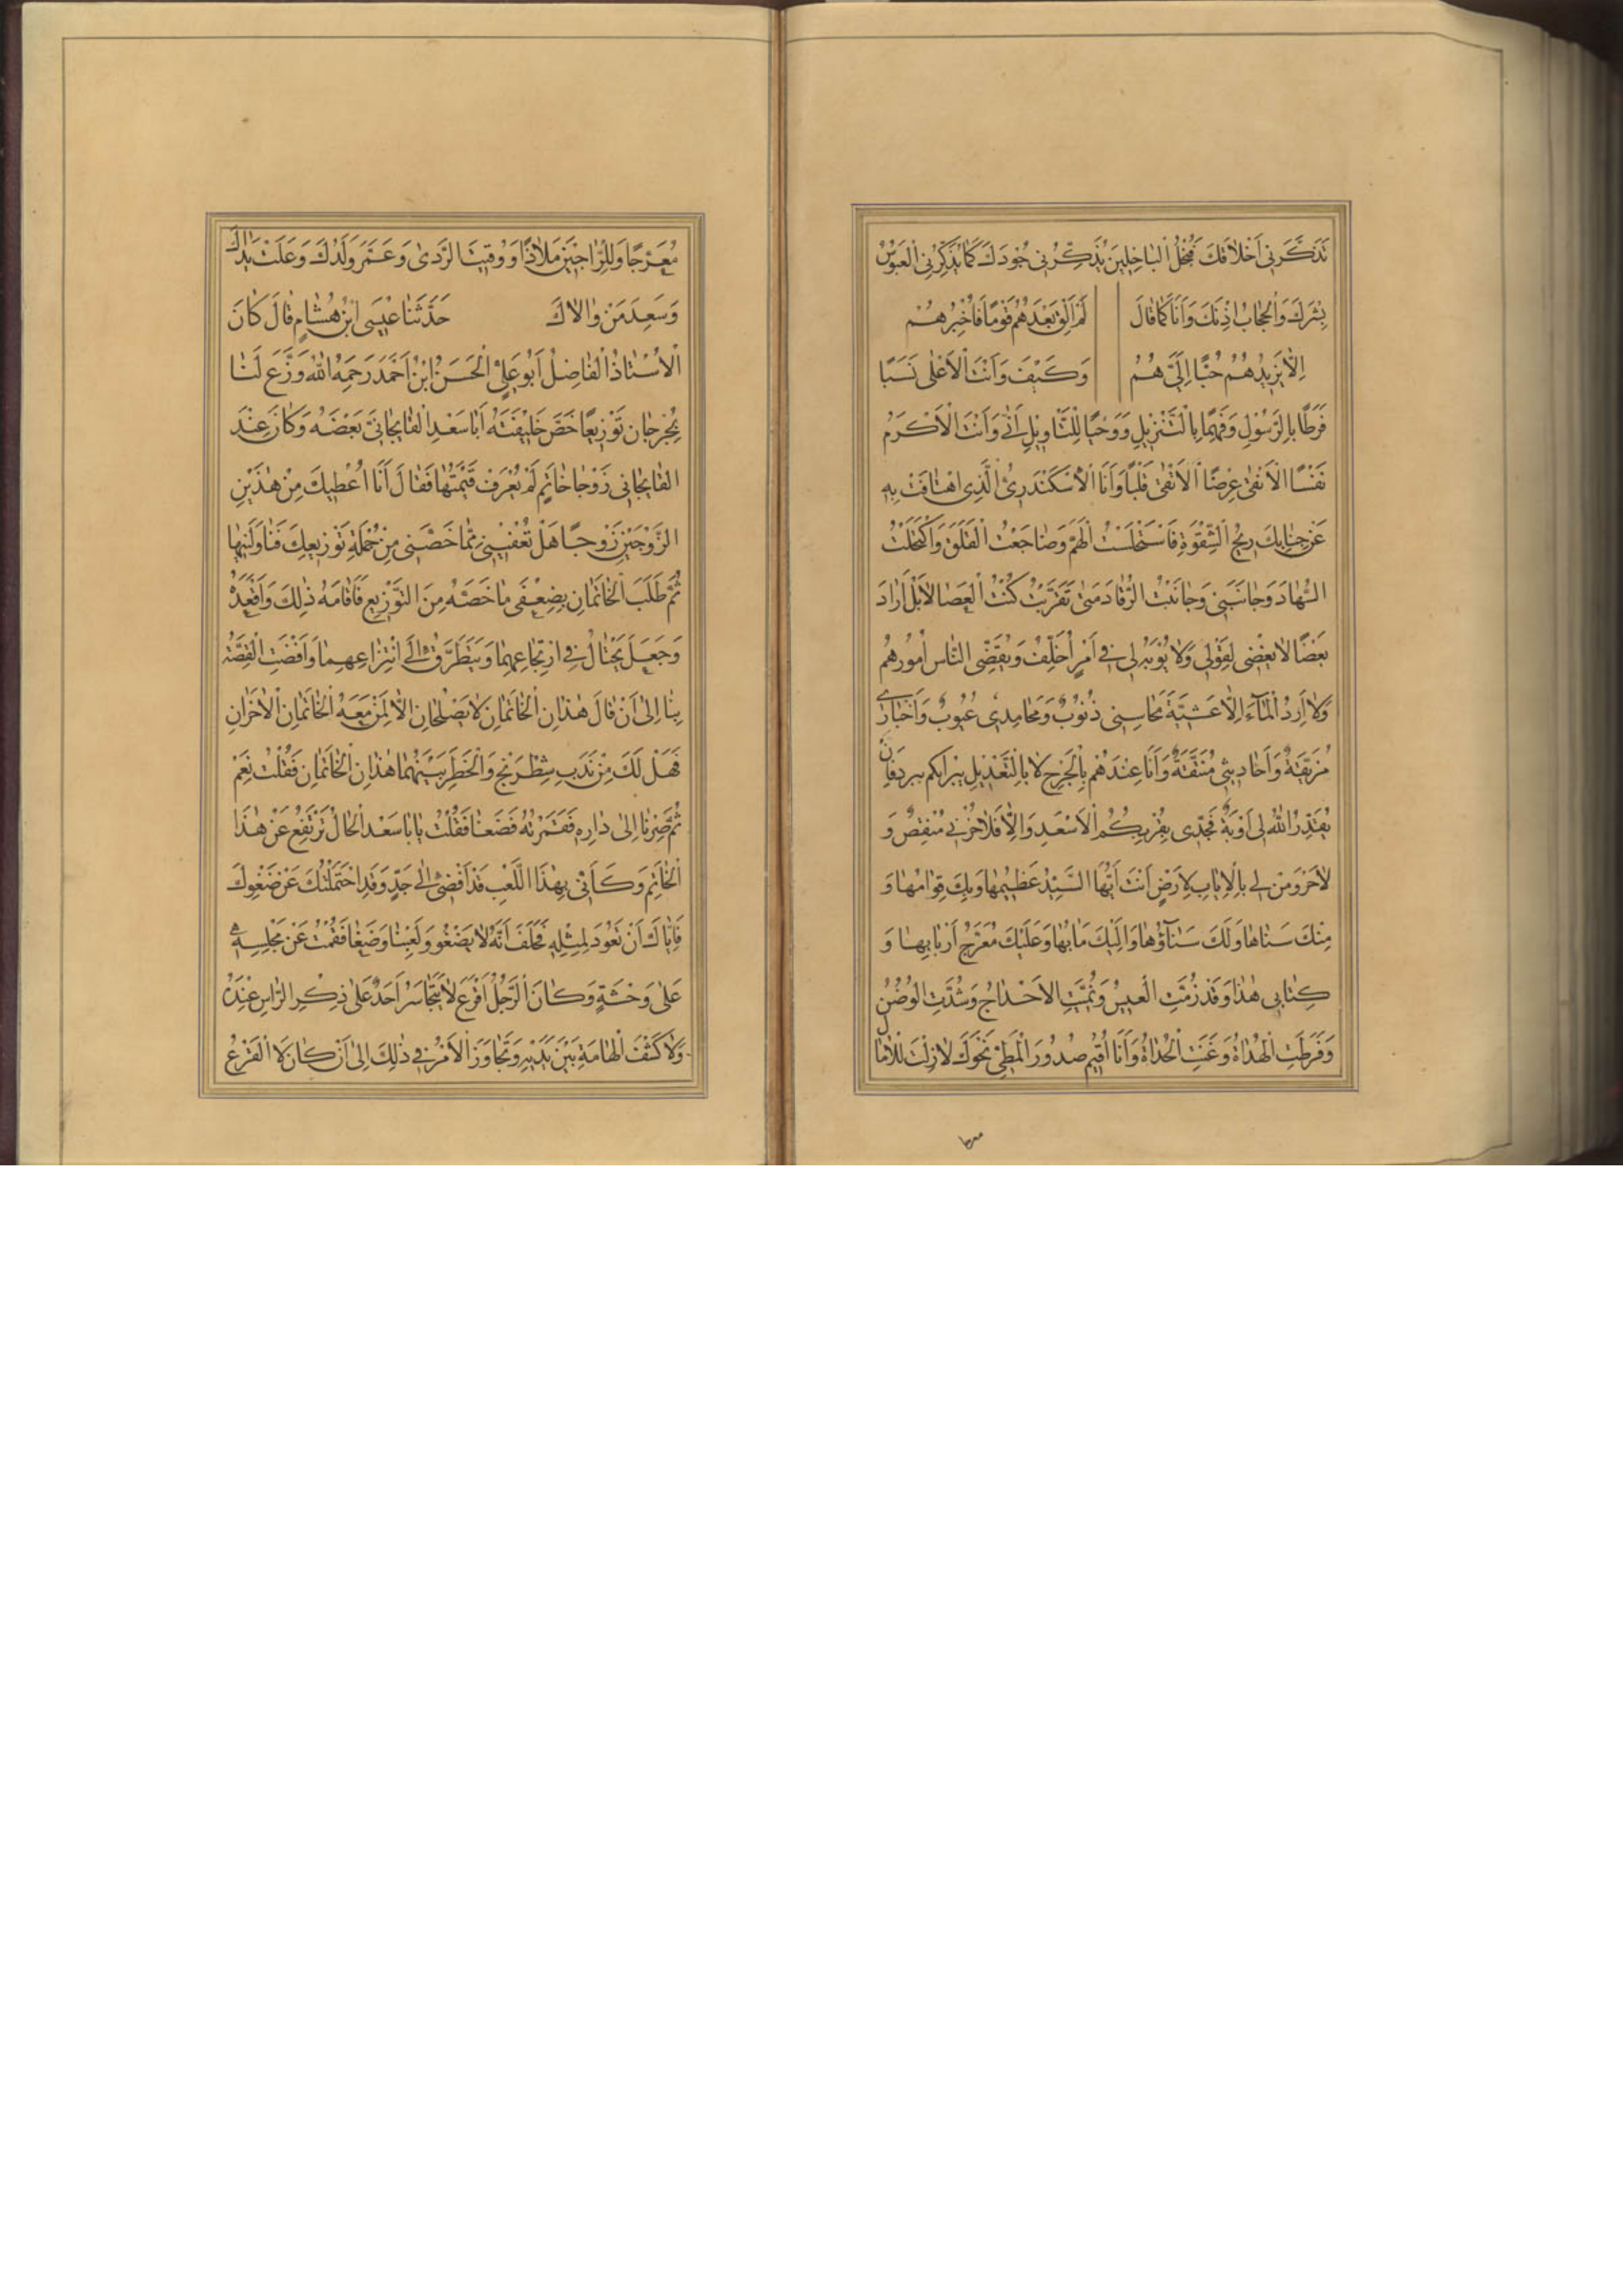 تَذَكَّرَنِي اَخْلاٰقَكَ فَبُخْلُ الْبٰاخِلِينَ يُذَكِّرُنِي جُودَكَ كَمٰا يُذَكِّرُنِي الْعَبُوسُ
بِشْرَكَ وَالْحِجٰابُ اِذْنَكَ وَاَنَا كَمٰا قٰالَ لَمْ اَلْقَ بَعْدَهُمْ قَوْمًا فَاُخْبِرُهُمْ
اِلّٰا يَزِيدُهُمْ حُبًّا اِلَيَّ هُمْ وَكَيْفَ وَاَنْتَ الْاَعْلٰى نَسَبًا
فَرَطًا بِالرَّسُولِ وَفَهْمًا بِالتَّنْزِيلِ وَوَحْيًا لِلتَّاْوِيلِ اَنّٰى وَاَنْتَ الْاَكْرَمُ
نَفْسًا الْاَنْقٰى عِرْضًا الْاَتْقٰى قَلْبًا وَاَنَا الْاَسْكَنْدَرِيُّ الَّذِي اهْتٰافَتْ بِهِ
عَنْ جَنٰابِكَ رِيحُ الشِّقْوَةِ فَاسْتَحْلَسْتُ الْهَمَّ وَضٰاجَعْتُ الْقَلَقَ وَاكْتَحَلْتُ
السُّهٰادَ وَجٰانَبَنِي وَجٰانَبْتُ الرُّقٰادَ مَتٰى تَقَرَّبْتُ كُنْتُ الْعَصٰا لَا بَلْ اَرٰادَ
بَعْضًا لَا يُغْضٰى لِقَوْلِي وَلٰا يُؤْبَهُ لِي فِي اَمْرٍ اُخَلَّفُ وَيُقَضِّي النّٰاسُ اُمُورَهُمْ
وَلٰا اَرِدُ الْمٰآءَ اِلّٰا عَشِيَّةً مَحٰاسِنِي ذُنُوبٌ وَمَحٰامِدِي عُيُوبٌ وَاَخْبٰارِي
مُزَيَّفَةٌ وَاَحٰادِيثِي مُنَقَّفَةٌ وَاَنَا عِنْدَهُمْ بِالْجَرْحِ لَا بِالتَّعْدِيلِ
يُقَدِّرُ اللهُ لِي اَوْبَةً فَجَدِّي بِقُرْبِكُمُ الْاَسْعَدِ وَاِلّٰا فَلٰا حُزْنِي مُنْقِصٌ وَ
لٰا حَزَوْمَنْ لِي بِالْاِيٰابِ لِاَرْضٍ اَنْتَ اَيُّهَا السَّيِّدُ عَظِيمُهٰا وَبِكَ قِوٰامُهٰا وَ
مِنْكَ سَنٰاهٰا وَلَكَ سَنٰآؤُهٰا وَاِلَيْكَ مَاٰبُهٰا وَعَلَيْكَ مُعَرَّجُ اَرْبٰابِهٰا وَ
كِتٰابِي هٰذٰا وَقَدْ زُمَّتِ الْعِيسُ وَنُمَّتِ الْاَحْدٰاجُ وَشُدَّتِ الْوُضُنُ
وَفَرَطَتِ الْهُدٰاةُ وَغَنَّتِ الْحُدٰاةُ وَاَنَا اُقِيمُ صُدُورَ الْمَطِيِّ نَحْوَكَ لٰازِلْتَ لِلْاٰمٰالِ
معرجا
مُعَرَّجًا وَلِلرّٰاجِينَ مَلٰاذًا وَوُقِيتَ الرَّدٰى وَعَمَّرَ وَلَدُكَ وَعَلَتْ يَدٰاكَ
وَسَعِدَ مَنْ وٰالٰاكَ حَدَّثَنٰا عِيسَى ابْنُ هُشٰامٍ قٰالَ كٰانَ
الْاُسْتٰاذُ الْفٰاضِلُ اَبُو عَلِيٍّ الْحَسَنُ ابْنُ اَحْمَدَ رَحِمَهُ اللهُ وَزَّعَ لَنٰا
بِجُرْجٰانَ تَوْزِيعًا خَصَّ خَلِيفَتَهُ اَبٰا سَعْدٍ الْفٰايِجٰانِيَّ بَعْضَهُ وَكٰانَ عِنْدَ
الْفٰايِجٰانِي زَوْجٰا خٰاتَمٍ لَمْ تُعْرَفْ قِيمَتُهٰا فَقٰالَ اَنَا اُعْطِيكَ مِنْ هٰذَيْنِ
الزَّوْجَيْنِ زَوْجًا هَلْ تُعْفِينِي مِمّٰا خَصَّنِي مِنْ جُمْلَةِ تَوْزِيعِكَ فَنٰاوَلَنِيهٰا
ثُمَّ طَلَبَ الْخٰاتَمٰانِ بِضِعْفَيْ مٰا خَصَّهُ مِنَ التَّوْزِيعِ فَاَقٰامَهُ ذٰلِكَ وَاَقْعَدَهُ
وَجَعَلَ يَحْتٰالُ فِي ارْتِجٰاعِهِمٰا وَيَتَطَرَّقُ اِلَى انْتِزٰاعِهِمٰا وَاَفْضَتِ الْقِصَّةُ
بِنٰا اِلٰى اَنْ قٰالَ هٰذٰانِ الْخٰاتَمٰانِ لٰا يَصْلُحٰانِ اِلّٰا لِمَنْ مَعَهُ الْخٰاتَمٰانِ الْاٰخَرٰانِ
فَهَلْ لَكَ مِنْ نَدَبِ شِطْرَنْجٍ وَالْخَطَرُ بَيْنَهُمٰا هٰذٰانِ الْخٰاتَمٰانِ فَقُلْتُ نَعَمْ
ثُمَّ صِرْنٰا اِلٰى دٰارِهِ فَقَمَرْتُهُ فَضَغٰا فَقُلْتُ يٰا اَبٰا سَعْدٍ الْحٰالُ تَرْتَفِعُ عَنْ هٰذَا
الْخٰاتَمِ وَكَاَنِّي بِهٰذَا اللَّعِبِ قَدْ اَفْضٰى اِلٰى جَدٍّ وَقَدِ احْتَمَلْتُكَ عَنْ ضَغْوِكَ
فَاِيّٰاكَ اَنْ تَعُودَ لِمِثْلِهِ فَحَلَفَ اَنَّهُ لٰا يَضْغُو وَلَعِبْنٰا وَضَغٰا فَقُمْتُ عَنْ مَجْلِسِهِ
عَلٰى وَحْشَةٍ وَكٰانَ الرَّجُلُ اَقْرَعَ لٰا يَتَجٰاسَرُ اَحَدٌ عَلٰى ذِكْرِ الرَّاْسِ عِنْدَهُ
وَلٰا كَشْفَ الْهٰامَةِ بَيْنَ يَدَيْهِ وَتَجٰاوَزَ الْاَمْرُ فِي ذٰلِكَ اِلٰى اَنْ كٰانَ لَا الْقَرْعُ